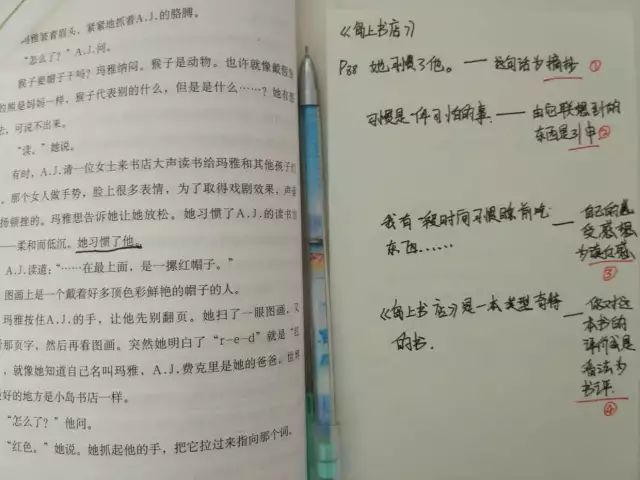 玛雅皱着眉头，紧紧地抓着A.J.的胳膊。
“怎么了？”A.J.问。
猴子要帽子干吗？玛雅纳闷。猴子是动物。也许就像戴假
熊是妈妈一样，猴子代表别的什么，但是是什么……？她有想
，可说不出来。
“读。”她说。
有时，A.J.请一位女士来书店大声读书给玛雅和其他孩子
那个女人做手势，脸上很多表情，为了取得戏剧效果，声音
扬顿挫的。玛雅想告诉她让她放松。她习惯了A.J.的读书
——柔和而低沉。她习惯了他。
A.J.读道：“……在最上面，是一摞红帽子。”
图画上是一个戴着好多顶色彩鲜艳的帽子的人。
玛雅按住A.J.的手，让他先别翻页。她扫了一眼图画，又
那页字，然后再看图画。突然她明白了“r—e—d”就是“红
，就像她知道自己名叫玛雅，A.J.费克里是她的爸爸，世界
好的地方是小岛书店一样。
“怎么了？”他问。
“红色。”她说。她抓起他的手，把它拉过来指向那个词。
《岛上书店》
P88 她习惯了他。——这句话为摘抄 ①
习惯是一件可怕的事。——由它联想到的
东西是引申 ②
我有一段时间习惯睡前吃
东西……
——自己的感
受感想
为读后感
③
《岛上书店》是一本类型奇特
的书.
——你对这
本书的
评价或是
看法为
书评.
④